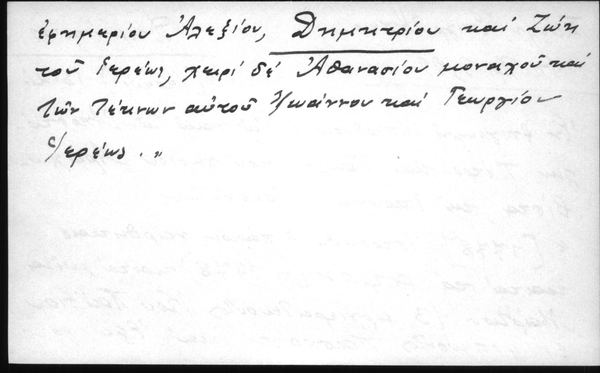 ἐφημερίου Ἀλεξίου, Δημητρίου καί Ζώη
τοῦ Ἱερέως, χειρί δέ Ἀθανασίου μοναχοῦ καί
τῶν τέκνων αὐτοῦ Ἰωάννου καί Γεωργίου
ἱερέως. „